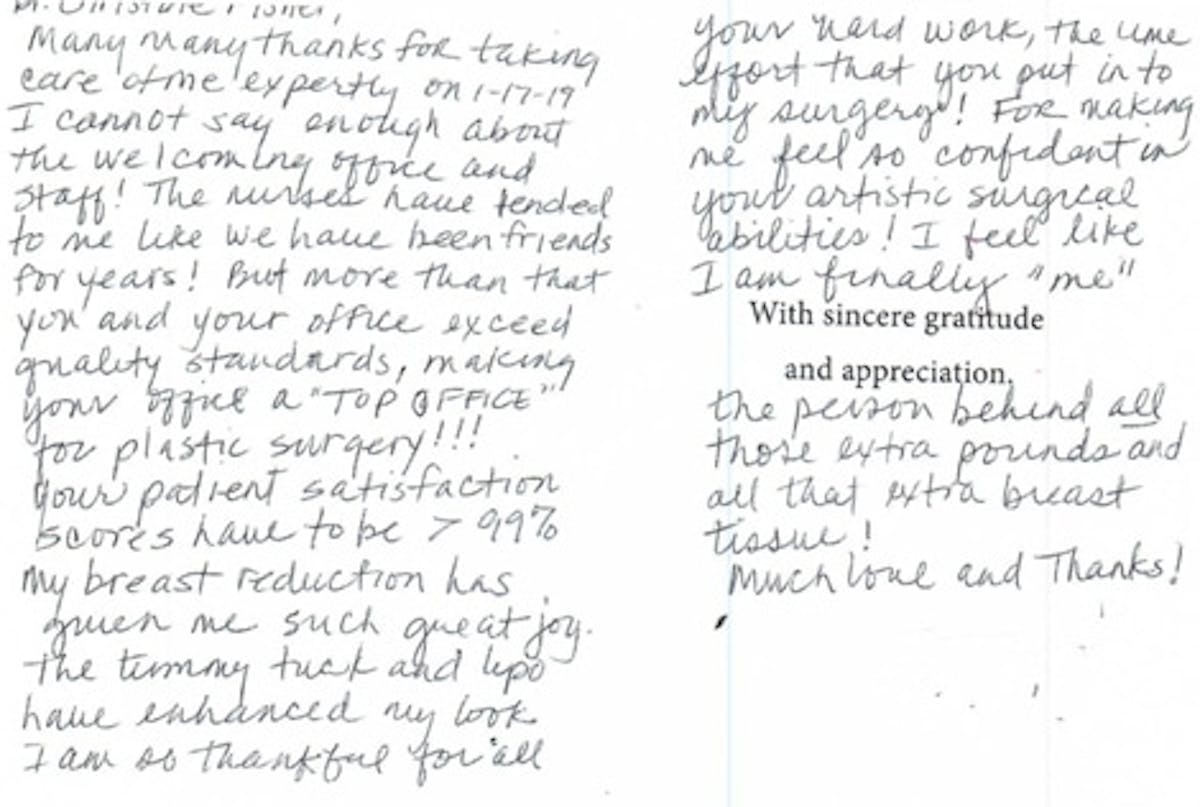 Many many thanks for taking
care of me expertly on 1-17-19
I cannot say enough about
the welcoming office and
staff! The nurses have tended
to me like we have been friends
for years! But more than that
you and your office exceed
quality standards, making
your office a "TOP OFFICE"
for plastic surgery!!!
your patient satisfaction
scores have to be > 99%
My breast reduction has
given me such great joy.
The tummy tuck and lipo
have enhanced my look.
I am so thankful for all
your hard work, the time
effort that you put in to
my surgery! For making
me feel so confident in
your artistic surgical
abilities! I feel like
I am finally "me"
With sincere gratitude
and appreciation.
the person behind all
those extra pounds and
all that extra breast
tissue!
Much love and Thanks!